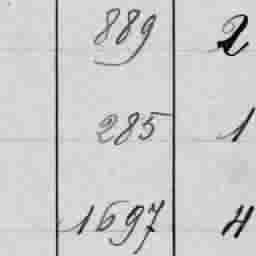 889 2
285 1
1697 4